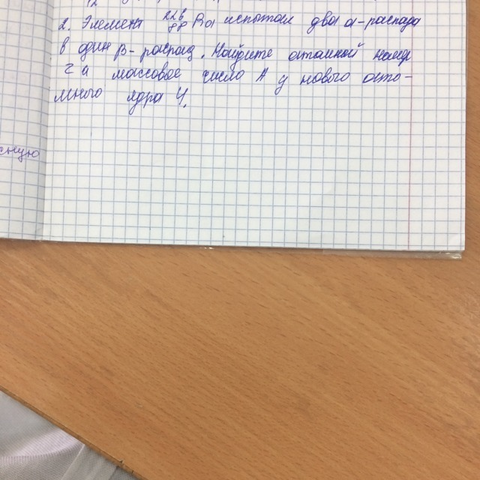 2. Элемент 226 88 Ra испытал два α-распада
и один β-распад. Найдите атомный номер
Z и массовое число A у нового ато-
много ядра Y.
сную